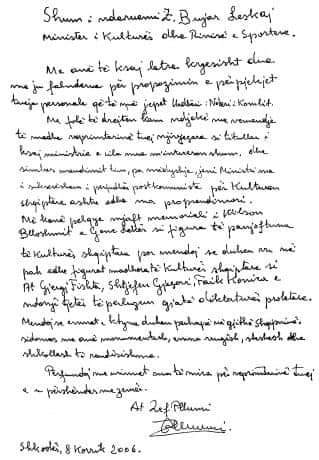 Shum i nderuemi Z. Bujar Leskaj
Ministër i Kulturës dhe Rinisë e Sporteve.
Me anë të ksaj letre kryesisht due
me ju falenderue për propozimin e përpjekjet
tueja personale që të më jepet Urdhëri i Nderi i Kombit.
Me fole të drejten kam ndjekë me vemendje
të madhe veprimtarinë tuej mjeshtri si titullar i
ksaj ministrie e cila ma intereson shum, dhe
simbas mendimit tim, pa mëdyshje, jeni Ministri ma
i suksesshem i periudhës postkomuniste për Kulturën
shqiptare ashtu edhe ma propozimin.
Më kanë pëlqye mjaft memoriali i Wilson
Blloshmit e Genc Lekës si figura të
të Kulturës shqiptare por mendoj se duhen vu në
pah edhe figurat madhore të Kulturës shqiptare si
At Gjergj Fishta, Shtjefen Gjeçovi, Faik Konica e
ndonji tjetër të gjatë diktaturës proletare.
Mendoj se emnat e ktyne duhen në gjithë Shqipninë,
sidomos me anë monumentesh, emna rrugësh, sheshesh dhe
shkollash të randësishme.
Përfundoj me urimet ma të mira për veprimtarinë tuej
e u përshëndes me zemër.
At Zef Pllumi
Shkodër, 8 Korrik 2006.